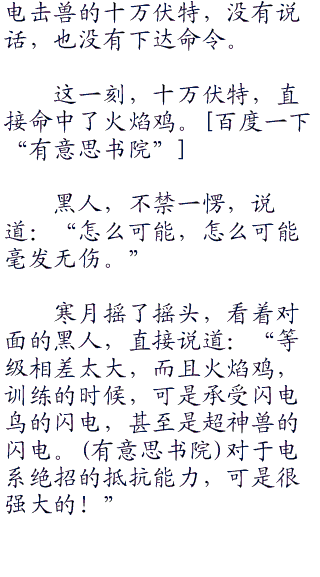 电击兽的十万伏特，没有说
话，也没有下达命令。
这一刻，十万伏特，直
接命中了火焰鸡。[百度一下
“有意思书院”]
黑人，不禁一愣，说
道：“怎么可能，怎么可能
毫发无伤。”
寒月摇了摇头，看着对
面的黑人，直接说道：“等
级相差太大，而且火焰鸡，
训练的时候，可是承受闪电
鸟的闪电，甚至是超神兽的
闪电。(有意思书院)对于电
系绝招的抵抗能力，可是很
强大的！”